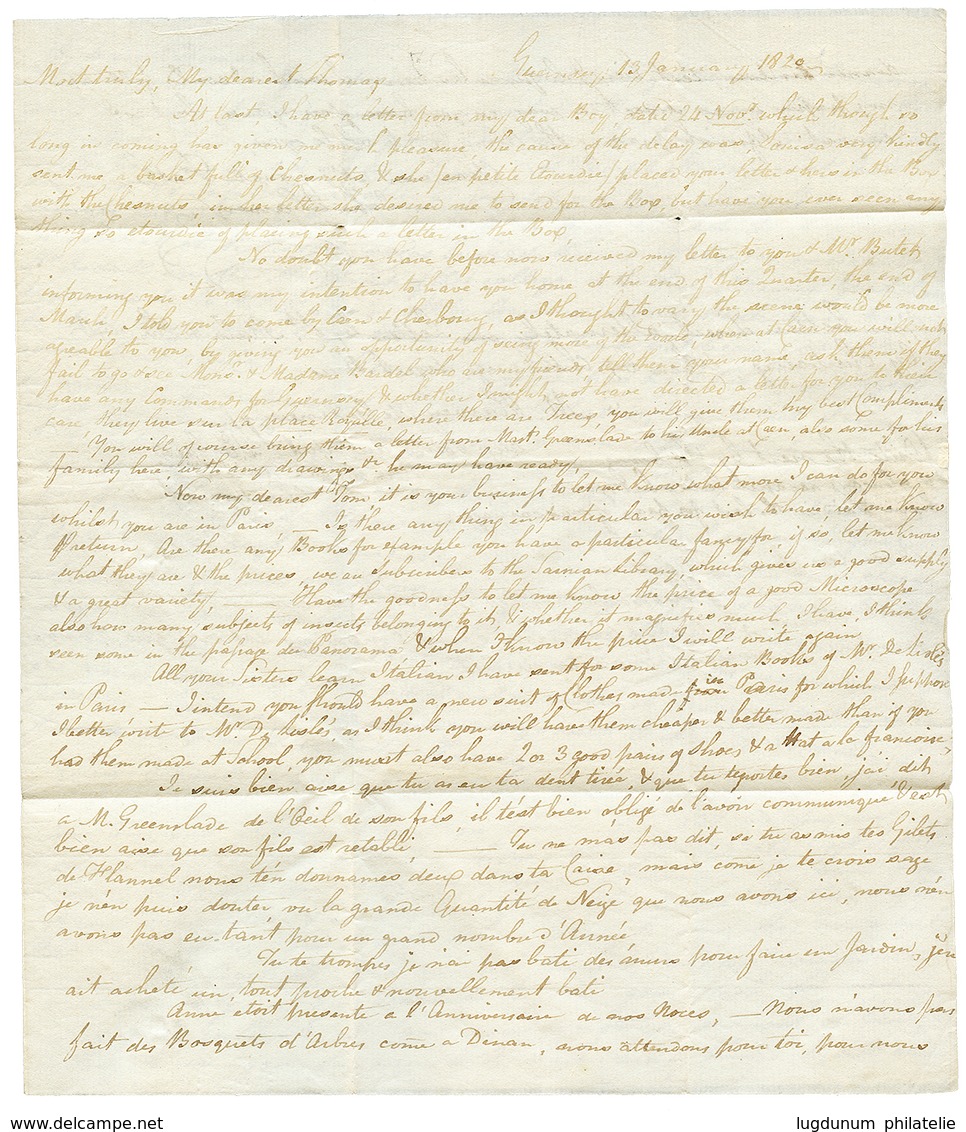 Guernsey 13 January 1820
Most truly, My dearest Thomas
At last I have a letter from my dear Boy dated 24 Novr. which though so
long in coming has given me much pleasure, the cause of the delay was, Louisa very kindly
sent me a basket full of Chesnuts, & she (en petite Etourdie) placed your letter & hers in the Box
with the Chesnuts in her letter she desired me to send for the Box, but have you ever seen any
thing so etourdie of placing such a letter in the Box,
No doubt you have before now received my letter to you & Mr.
informing you it was my intention to have you home at the end of this Quarter, the end of
March, I told you to come by Caen & Cherbourg, as I thought to vary the scene would be more
agreable to you, by giving you an opportunity of seeing more of the world, when at Caen you will not
fail to go & see Mons. & Madame who are my friends tell them your name, ask them if they
have any Commands for Guernsey & whether I might not have directed a letter for you to their
care they live sur la place Royalle, where there are Trees, you will give them my best Compliments
— You will of course bring them a letter from Mast. Greenslade to his Uncle at Caen, also some for his
family here, with any drawings &c he may have ready,
Now my dearest Tom it is your business to let me know what more I can do for you
whilst you are in Paris — Is there any thing in particular you wish to have, let me know
return, Are there any Books for example you have a particular fancy for, if so, let me know
what they are & the prices, we are Subscribers to the Sarnian Library, which gives us a good supply
& a great variety, — Have the goodness to let me know the price of a good Microscope
also how many subjects of insects belonging to it, & whether it magnifies much, I have, I think
seen some in the passage du Panorama & when I know the price I will write again
All your Sisters learn Italian I have sent for some Italian Books of Mr. De Lisle's
in Paris — I intend you should have a new suit of Clothes made in Paris for which I suppose
I better write to Mr De Lisle's, as I think you will have them cheaper & better made than if you
had them made at School, you must also have 2 or 3 good pairs of shoes & a Hat a la francoise
Je suis bien aise que tu as eu ta dent tirée, & que tu teportes bien, j'ai dit
a M. Greenslade de l'Oeil de son fils, il t'est bien obligé de l'avoir communiqué & est
bien aise que son fils est retabli, — Tu ne mas pas dit, si tu as mis tes Gilets
de Flannel nous t'en donnames deux dans ta Caise, mais come je te crois sage
je n'en puis douter vu la grande Quantité de Neige que nous avons ici, nous n'en
avons pas eu tant pour un grand nombre d'Année
Tu te trompes je n'ai pas bati des murs pour faire un Jardin, j'en
ait acheté un, tout proche & nouvellement bati
Anne etoit presente a l'Anniversaire de nos Noces, — Nous n'avons pas
fait des Bosquets d'Arbres come a Dinan, nous attendons pour toi, pour nous
www.delcampe.net
lugdunum philatelie